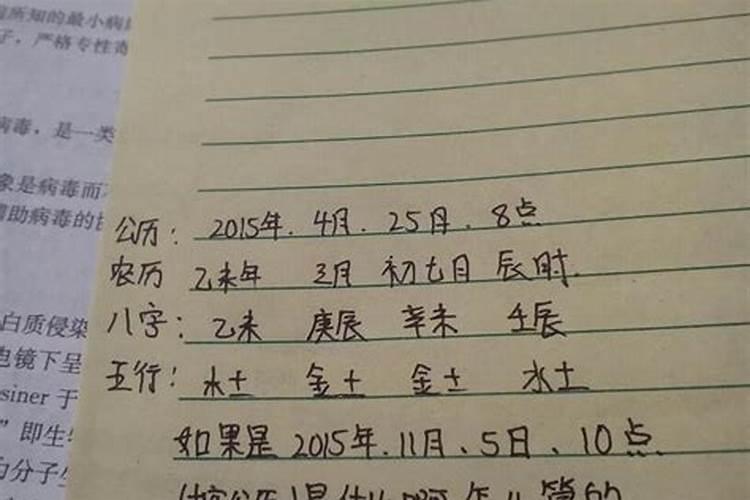 所知的最小病
子，严格专性寄
病毒，是一类
象是病毒而
辅助病毒的
白质侵染
电镜下呈
siner 于
”即生
为分子
公历：2015年．4月．25日．8点
农历 乙未年 三月 初七日 辰时．
八字：乙未 庚辰 辛未 壬辰
五行：水土 金土 金土 水土
如果是 2015年．11月、5日、10点